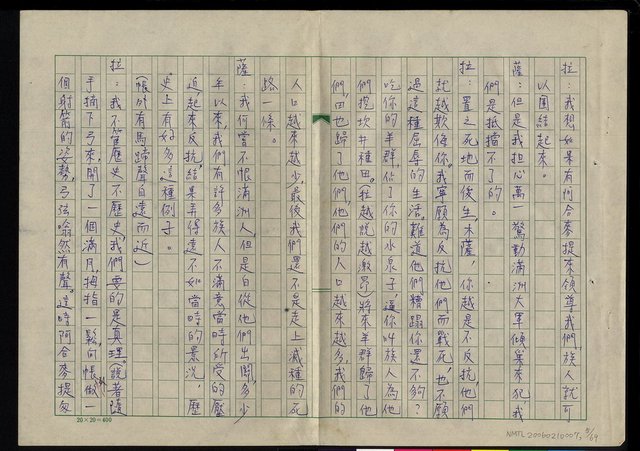 拉：我想如果有阿合來提來領導我們，族人就可
以團結起來。
薩：但是我担心萬一驚動滿洲大軍傾巢來犯，我
們是抵擋不了的。
拉：置之死地而後生，木薩，你越是不反抗，他們
就越欺侮你。我寧願為反抗他們而戰死，也不願
過這種屈辱的生活。難道他們糟蹋你還不夠？
吃你的羊群，佔了你的水泉子，逼你叫族人為他
們挖坎井種田。（拉越說越激昂）將來羊群歸了他
們，田也歸了他們，他們的人口越來越多，我們的
人口越來越少，最後我們還不是走上滅種的死
路一條。
薩：我何嘗不恨滿洲人，但是自從他們出關，多少
年以來，我們有許多族人不滿意當時所受的壓
迫，起來反抗，結果弄得遠不如當時的景況，歷
史上有好多這種例子。
（帳外有馬蹄聲自遠而近）
拉：我不管歷史不歷史，我們要的是真理。（說著隨
手摘下弓來，開了一個滿月，拇指一鬆，向帳做一
個射箭的姿勢，弓弦嗡然有聲。這時阿合麥提匆
20×20=400
NMTL20060210007